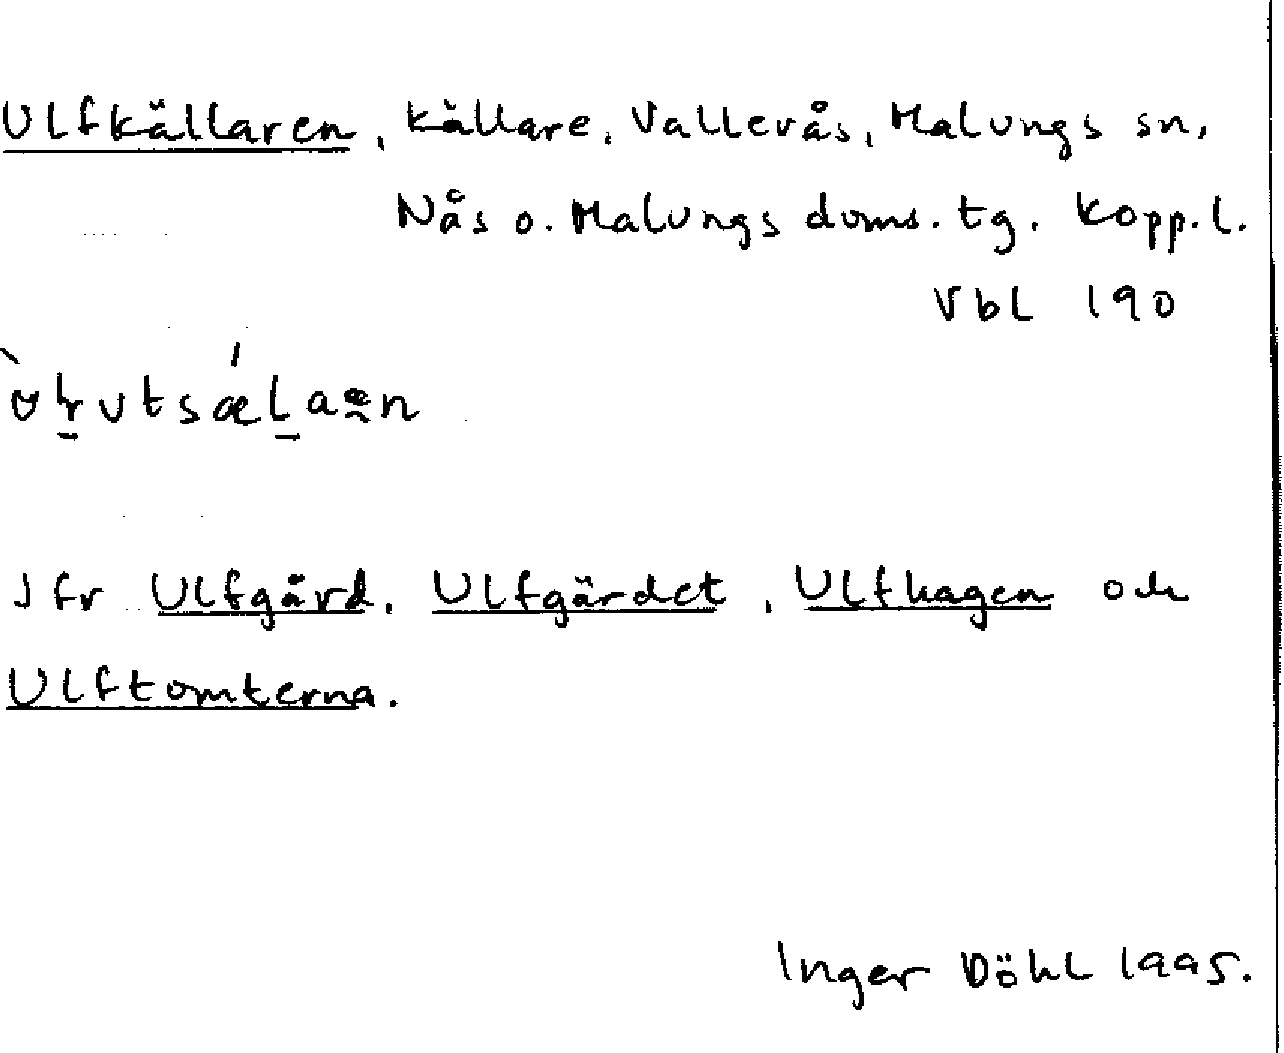 Ulfkällaren, källare, Vallevås, Malungs sn,
Nås o. Malungs doms. tg. Kopp. l.
Vbl 190
Jfr Ulfgård, Ulfgärdet, Ulfhagen och
Ulftomterna.
Inger Döhl 1995.